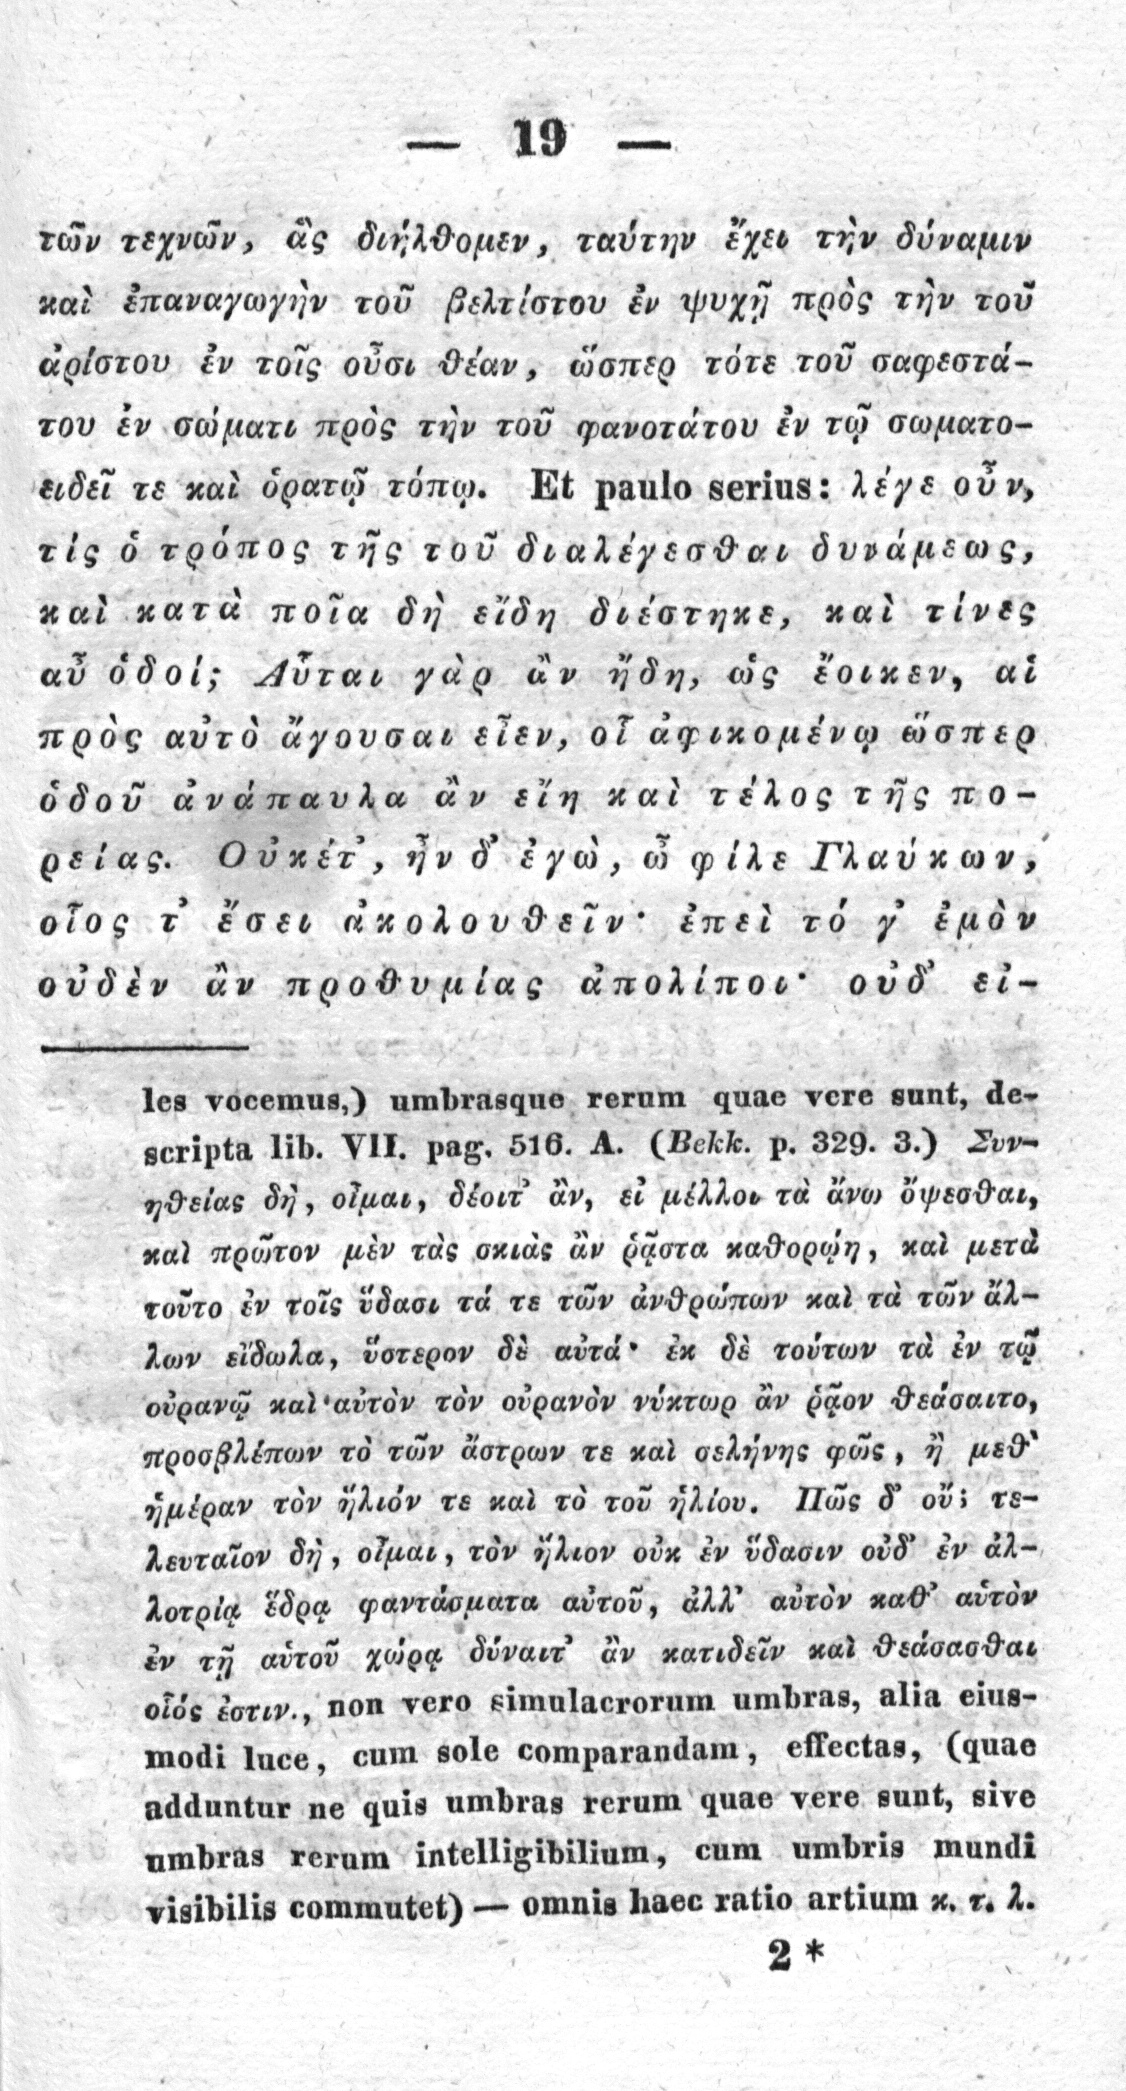 — 19 —
τῶν τεχνῶν, ἃς διήλθομεν, ταύτην ἔχει τὴν δύναμιν
καὶ ἐπαναγωγὴν τοῦ βελτίστου ἐν ψυχῇ πρὸς τὴν τοῦ
ἀρίστου ἐν τοῖς οὖσι θέαν, ὥσπερ τότε τοῦ σαφεστά-
του ἐν σώματι πρὸς τὴν τοῦ φανοτάτου ἐν τῷ σωματο-
ειδεῖ τε καὶ ὁρατῷ τόπῳ. Et paulo serius: λέγε οὖν,
τίς ὁ τρόπος τῆς τοῦ διαλέγεσθαι δυνάμεως,
καὶ κατὰ ποῖα δὴ εἴδη διέστηκε, καὶ τίνες
αὖ ὁδοί; Αὗται γὰρ ἂν ἤδη, ὡς ἔοικεν, αἱ
πρὸς αὐτὸ ἄγουσαι εἶεν, οἷ ἀφικομένῳ ὥσπερ
ὁδοῦ ἀνάπαυλα ἂν εἴη καὶ τέλος τῆς πο-
ρείας. Οὐκέτ᾽, ἦν δ᾽ ἐγὼ, ὦ φίλε Γλαύκων,
οἷος τ᾽ ἔσει ἀκολουθεῖν· ἐπεὶ τό γ᾽ ἐμὸν
οὐδὲν ἂν προθυμίας ἀπολίποι· οὐδ᾽ εἰ-
les vocemus,) umbrasque rerum quae vere sunt, de-
scripta lib. VII. pag. 516. A. (Bekk. p. 329. 3.) Συν-
ηθείας δὴ, οἶμαι, δέοιτ᾽ ἂν, εἰ μέλλοι τὰ ἄνω ὄψεσθαι,
καὶ πρῶτον μὲν τὰς σκιὰς ἂν ῥᾷστα καθορῴη, καὶ μετὰ
τοῦτο ἐν τοῖς ὕδασι τά τε τῶν ἀνθρώπων καὶ τὰ τῶν ἄλ-
λων εἴδωλα, ὕστερον δὲ αὐτά· ἐκ δὲ τούτων τὰ ἐν τῷ
οὐρανῷ καὶ αὐτὸν τὸν οὐρανὸν νύκτωρ ἂν ῥᾷον θεάσαιτο,
προσβλέπων τὸ τῶν ἄστρων τε καὶ σελήνης φῶς, ἢ μεθ᾽
ἡμέραν τὸν ἥλιόν τε καὶ τὸ τοῦ ἡλίου. Πῶς δ᾽ οὔ; τε-
λευταῖον δὴ, οἶμαι, τὸν ἥλιον οὐκ ἐν ὕδασιν οὐδ᾽ ἐν ἀλ-
λοτρίᾳ ἕδρᾳ φαντάσματα αὐτοῦ, ἀλλ᾽ αὐτὸν καθ᾽ αὑτὸν
ἐν τῇ αὑτοῦ χώρᾳ δύναιτ᾽ ἂν κατιδεῖν καὶ θεάσασθαι
οἷός ἐστιν., non vero simulacrorum umbras, alia eius-
modi luce, cum sole comparandam, effectas, (quae
adduntur ne quis umbras rerum quae vere sunt, sive
umbras rerum intelligibilium, cum umbris mundi
visibilis commutet) — omnis haec ratio artium κ. τ. λ.
2 *